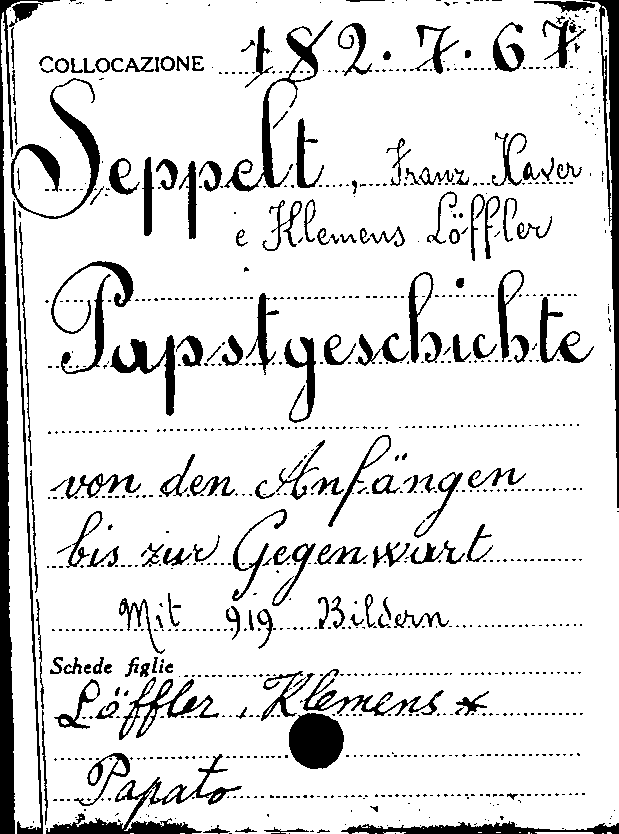 COLLOCAZIONE 182.7.67
Seppelt, Franz Xaver
e Klemens Löffler
Papstgeschichte
von den Anfängen
bis zur Gegenwart
Mit 919 Bildern
Schede figlie
Löffler, Klemens *
Papato